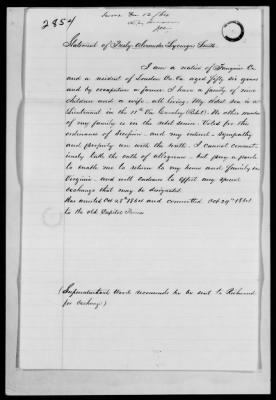 2854
Statement of Presly Alexander Lycurgus Smith
I am a native of Fauquier Co
and a resident of Loudon Co. Va aged fifty six years
and by occupation a farmer. I have a family of nine
children and a wife - all living. My eldest son is a
Lieutenant in the 11th Va Cavalry (Rebel). No other member
of my family is in the rebel service. Voted for the
ordinance of Secession - and my interest - sympathy
and property are with the South. I cannot consci-
tiously take the oath of allegiance - but pray a parole
to enable me to return to my home and family in
Virginia - and will endeavor to effect any special
exchange that may be designated.
Was arrested Oct 28th 1864 and committed Oct 29th 1864
to the old Capitol Prison
(Superintendent Wood recommends he be sent to Richmond
for exchange)